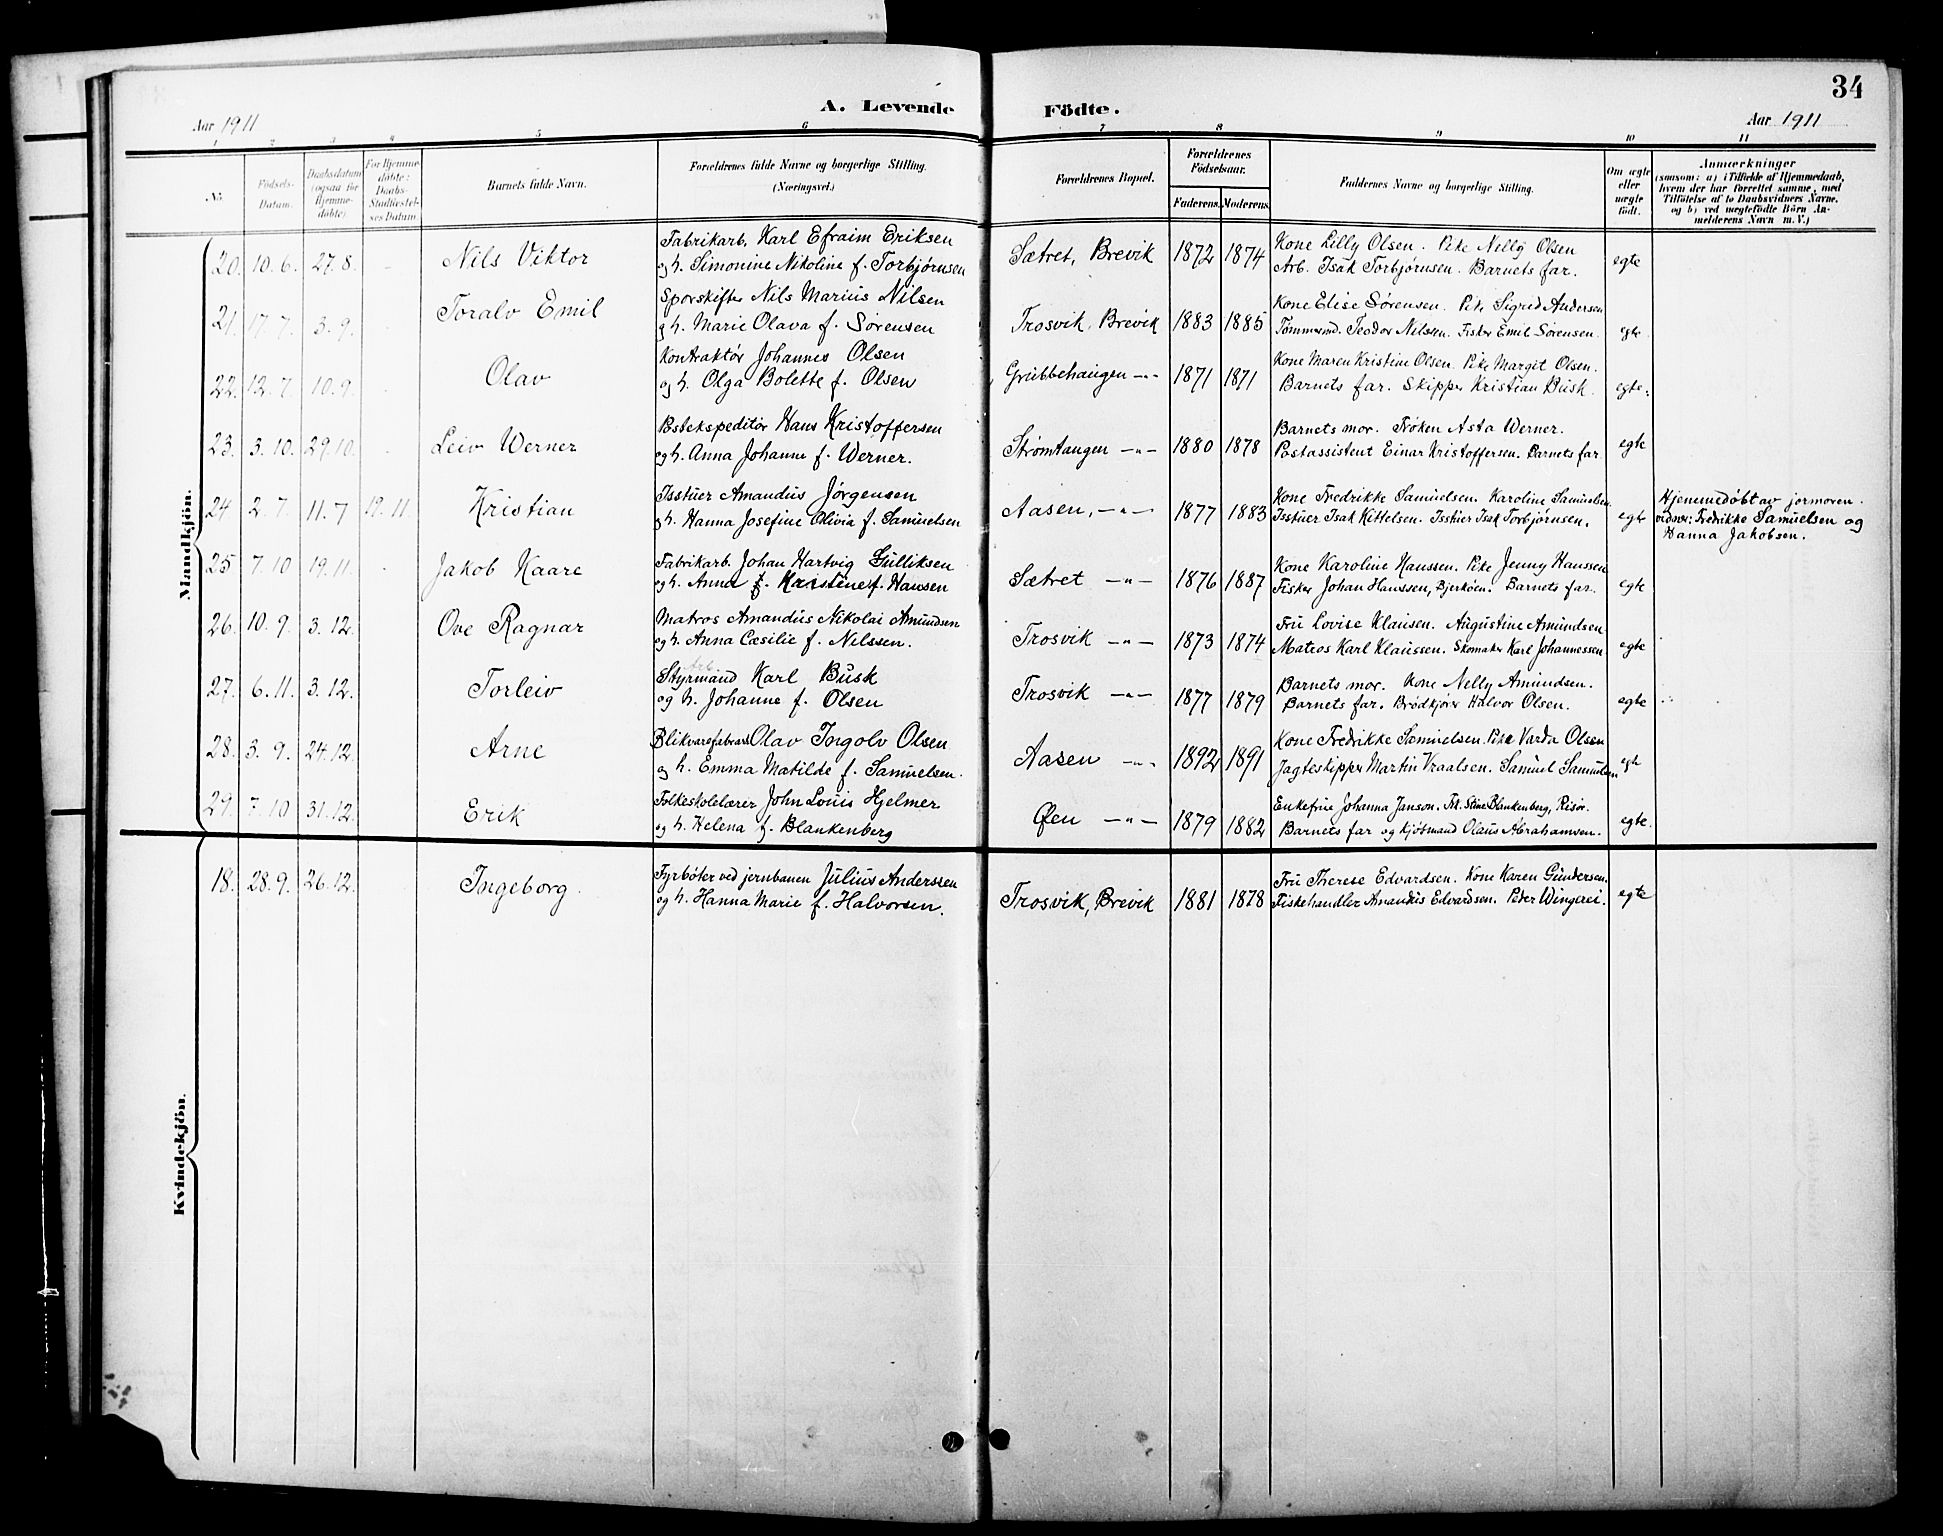 34
A. Levende Födte.
Aar 1911
Aar 1911
1 2 3 4 5 6 7 8 9 10 11
No. Födsels-Datum. Daabsdatum (ogsaa for Hjemme-döbte). For Hjemme-döbte: Daabs-Stadfæstel-ses Datum. Barnets fulde Navn. Forældrenes fulde Navne og borgerlige Stilling. (Næringsvei.) Forældrenes Bopæl. Forældrenes Födselsaar. Faderens. Moderens. Faddernes Navne og borgerlige Stilling. Om ægte eller uægte födt. Anmærkninger (saasom: a) i Tilfælde af Hjemmedaab, hvem der har forrettet samme, med Tilföielse af to Daabsvidners Navne. og b) ved uægtefödte Börn An-melderens Navn m. V.)
Mandkjön.
20. 10. 6. 27. 8. - Nils Viktor Fabrikarb. Karl Efraim Eriksen Sætret, Brevik 1872 1874 Kone Lilly Olsen. Pike Nelly Olsen egte
og h. Simonine Nikoline f. Torbjørnsen Arb. Isak Torbjørnsen. Barnets far.
21. 17. 7. 3. 9. Toralv Emil Sporskifter Nils Marius Nilsen Trosvik, Brevik 1883 1885 Kone Elise Sørensen. Pike Sigrid Andersen egte.
og h. Marie Olava f. Sørensen Tømmermd. Teodor Nilsen. Fisker Emil Sørensen.
22. 12. 7. 10. 9. Olav Kontraktør Johannes Olsen Grubbehaugen -"- 1871 1871 Kone Maren Kristine Olsen. Pike Margit Olsen. egte.
og h. Olga Bolette f. Olsen Barnets far. Skipper Kristian Busk.
23. 3. 10. 29. 10. - Leiv Werner Postekspeditør Hans Kristoffersen Strømtangen -"- 1880 1878 Barnets mor. Frøken Asta Werner. egte
og h. Anna Johanne f. Werner. Postassistent Einar Kristoffersen. Barnets far.
24 2. 7. 11. 7 19. 11 Kristian Isstuer Amandus Jørgensen Aasen, -"- 1877 1883 Kone Fredrikke Samuelsen. Karoline Samuelsen egte Hjemmedøbt av jormoren.
og h. Hanna Josefine Olivia f. Samuelsen Isstuer Isak Kittelsen. Isstuer Isak Torbjørnsen. vidner: Fredrikke Samuelsen og
Hanna Jakobsen.
25 7. 10 19. 11. - Jakob Kaare Fabrikarb. Johan Hartvig Gulliksen Sætret -"- 1876 1887 Kone Karoline Hanssen. Pike Jenny Hanssen egte
og h. Anna f. Kristine f. Hansen Fisker Johan Hanssen, Bjerkøen. Barnets far.
26. 10. 9. 3. 12. Ove Ragnar Matros Amandus Nikolai Amundsen Trosvik -"- 1873 1874 Fru Lovise Klausen. Augustine Amundsen egte
og h. Anna Cæsilie f. Nelssen. Matros Karl Klaussen. Skomaker Karl Johannessen
27. 6. 11. 3. 12. Torleiv Styrmand Karl Busk Trosvik -"- 1877 1879 Barnets mor. Kone Nelly Amundsen. egte
og h. Johanne f. Olsen Barnets far. Brødkjører Halvor Olsen.
28. 3. 9. 24. 12. Arne Blikvarefabrarb. Olav Ingolv Olsen Aasen -"- 1892 1891 Kone Fredrikke Samuelsen. Pike Varda Olsen egte
og h. Emma Matilde f. Samuelsen. Jagteskipper Martin Vraalsen. Samuel Samuelsen
29. 7. 10 31. 12. Erik Folkeskolelærer John Louis Hjelmer Øen -"- 1879 1882 Enkefrue Johanna Janson. Frk. Stine Blankenberg, Risør. egte.
og h. Helena f. Blankenberg Barnets far og kjøbmand Olaus Abrahamsen.
Kvindekjön.
18. 28. 9. 26. 12. Ingeborg. Fyrbøter ved jernbanen Julius Anderssen Trosvik, Brevik 1881 1878 Fru Therese Edvardsen. Kone Karen Gundersen. egte
og h. Hanna Marie f. Halvorsen. Fiskehandler Amandus Edvardsen. Peder Wingerei.